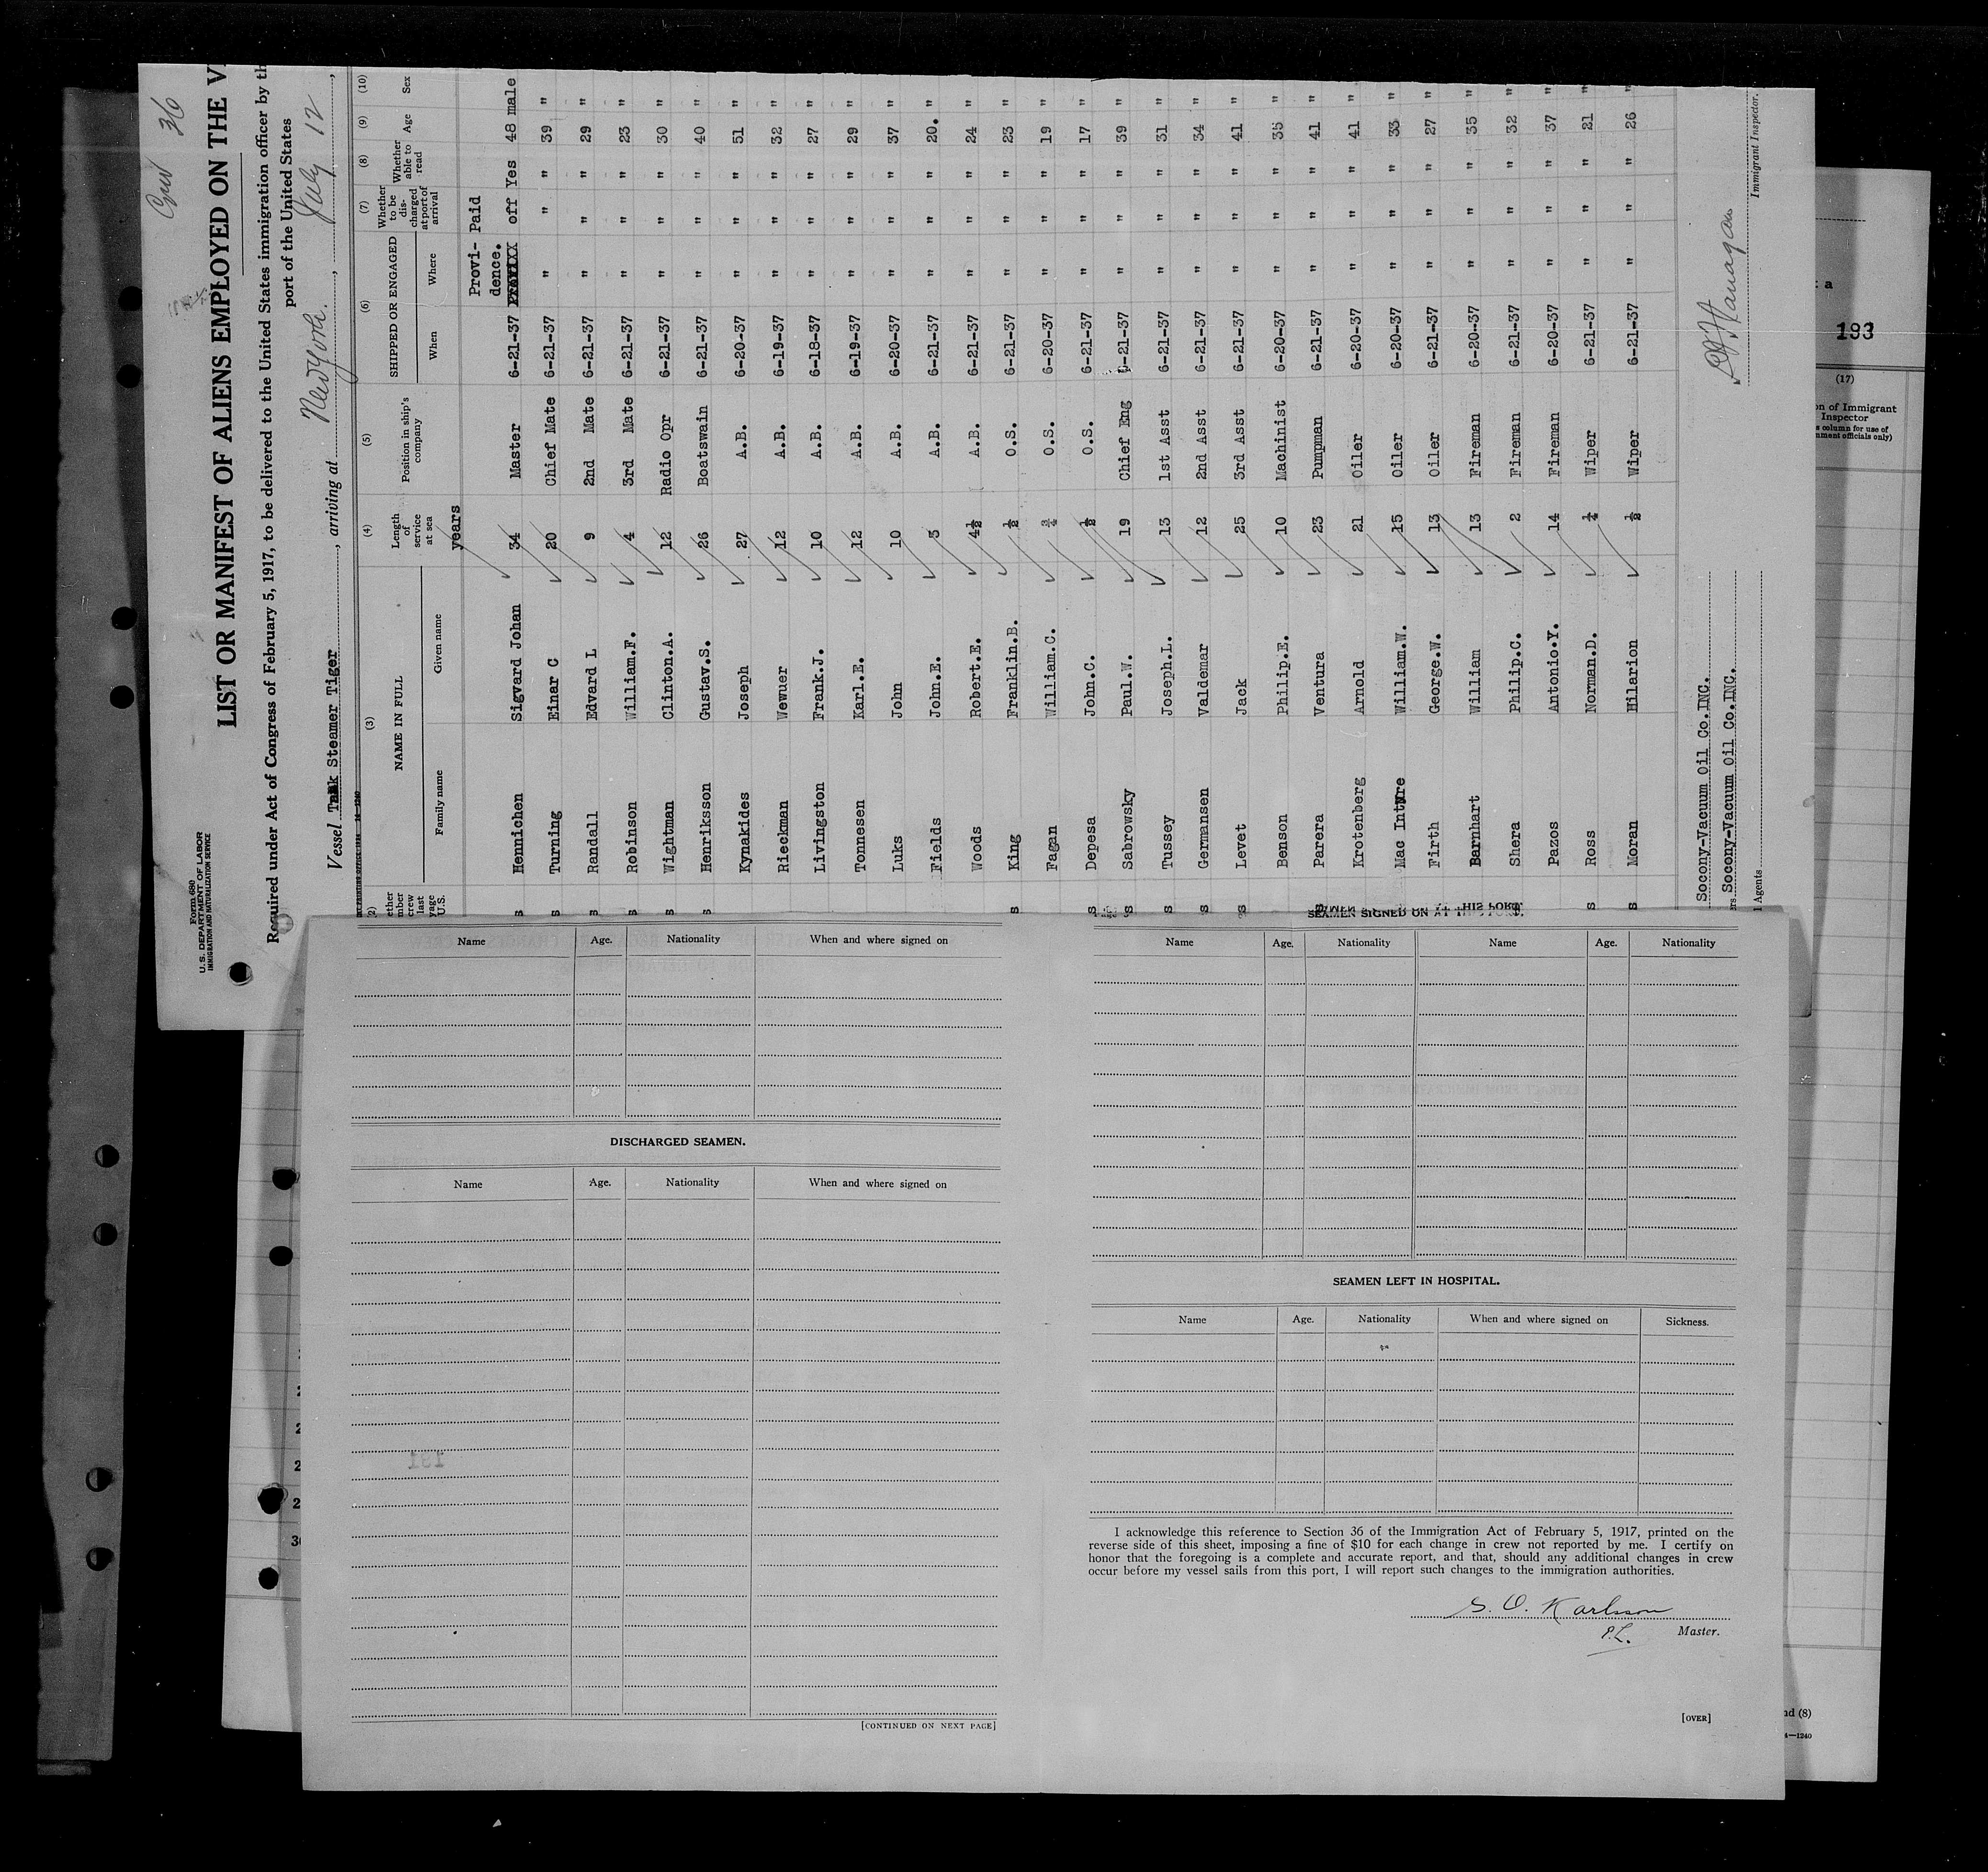 Form 680
U. S. DEPARTMENT OF LABOR
IMMIGRATION AND NATURALIZATION SERVICE
Crew 36
LIST OR MANIFEST OF ALIENS EMPLOYED ON THE V
Required under Act of Congress of February 5, 1917, to be delivered to the United States immigration officer by th
port of the United States
Vessel Tank Steamer Tiger, arriving at New York, July 12,
(2) (3) (4) (5) (6) (7) (8) (9) (10)
NAME IN FULL
Family name Given name
Length of service at sea
Position in ship's company
SHIPPED OR ENGAGED
When Where
Whether to be discharged at port of arrival
Whether able to read
Age
Sex
years
Provi- Paid
dence.
Hennichen Sigvard Johan 34 Master 6-21-37 off Yes 48 male
s Turning Einar C 20 Chief Mate 6-21-37 " " " 39 "
s Randall Edvard L 9 2nd Mate 6-21-37 " " " 29 "
s Robinson William.F. 4 3rd Mate 6-21-37 " " " 23 "
s Wightman Clinton.A. 12 Radio Opr 6-21-37 " " " 30 "
s Henriksson Gustav.S. 26 Boatswain 6-21-37 " " " 40 "
Kynakides Joseph 27 A.B. 6-20-37 " " " 51 "
Rieckman Wewuer 12 A.B. 6-19-37 " " " 32 "
Livingston Frank.J. 10 A.B. 6-18-37 " " " 27 "
Tonnesen Karl.E. 12 A.B. 6-19-37 " " " 29 "
Luks John 10 A.B. 6-20-37 " " " 37 "
Fields John.E. 3 A.B. 6-21-37 " " " 20. "
Woods Robert.E. 4½ A.B. 6-21-37 " " " 24 "
s King Franklin.B. ½ O.S. 6-21-37 " " " 23 "
Fagan William.C. ¾ O.S. 6-20-37 " " " 19 "
s Depesa John.C. ½ O.S. 6-21-37 " " " 17 "
s Sabrowsky Paul.W. 19 Chief Eng 6-21-37 " " " 39 "
s Tussey Joseph.L. 13 1st Asst 6-21-37 " " " 31 "
s Germansen Valdemar 12 2nd Asst 6-21-37 " " " 34 "
s Levet Jack 25 3rd Asst 6-21-37 " " " 41 "
Benson Philip.E. 10 Machinist 6-20-37 " " " 35 "
Parera Ventura 23 Pumpman 6-21-37 " " " 41 "
Krotenberg Arnold 21 Oiler 6-20-37 " " " 41 "
Mac Intyre William.W. 15 Oiler 6-20-37 " " " 33 "
Firth George.W. 13 Oiler 6-21-37 " " " 27 "
Barnhart William 13 Fireman 6-20-37 " " " 35 "
Shera Philip.C. 2 Fireman 6-21-37 " " " 32 "
Pazos Antonio.Y. 14 Fireman 6-20-37 " " " 37 "
s Ross Norman.D. ¼ Wiper 6-21-37 " " " 21 "
s Moran Hilarion ½ Wiper 6-21-37 " " " 26 "
Socony-Vacuum Oil Co.INC.
Socony-Vacuum Oil Co.INC.
l Agents
Immigrant Inspector.
183
(17)
on of Immigrant
Inspector
column for use of
nment officials only)
Name Age. Nationality When and where signed on
DISCHARGED SEAMEN.
Name Age. Nationality When and where signed on
[CONTINUED ON NEXT PAGE]
SEAMEN SIGNED ON AT THIS PORT.
Name Age. Nationality Name Age. Nationality
SEAMEN LEFT IN HOSPITAL.
Name Age. Nationality When and where signed on Sickness.
I acknowledge this reference to Section 36 of the Immigration Act of February 5, 1917, printed on the
reverse side of this sheet, imposing a fine of $10 for each change in crew not reported by me. I certify on
honor that the foregoing is a complete and accurate report, and that, should any additional changes in crew
occur before my vessel sails from this port, I will report such changes to the immigration authorities.
S. O. Karlsson
P.L. Master.
[OVER]
30
nd (8)
4—1240